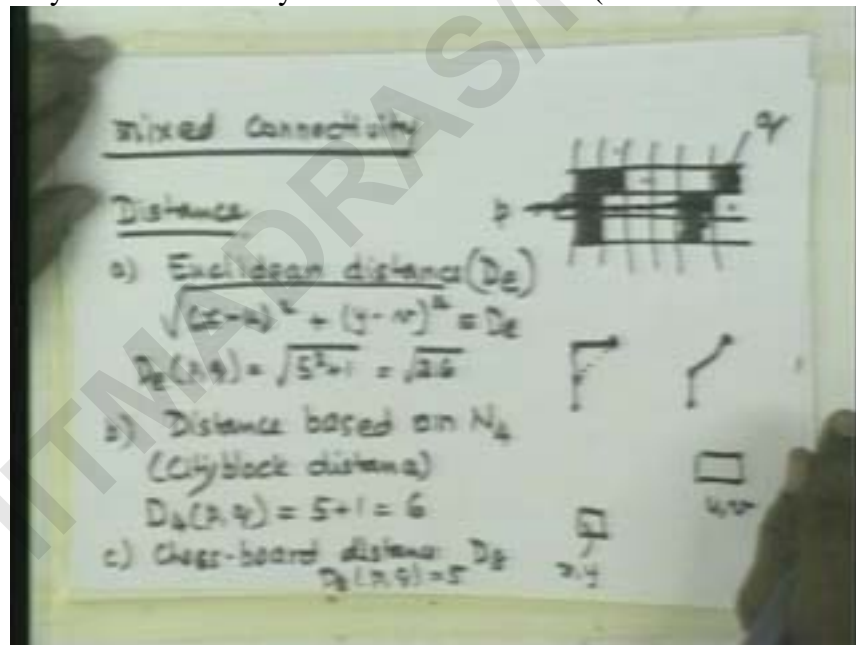 mixed Connectivity
q
Distance
p
a) Euclidean distance (De)
√(x-u)² + (y-v)² = De
De(p,q) = √5²+1 = √26
b) Distance based on N4
(City block distance)
D4(p,q) = 5+1 = 6
u,v
c) Chess-board distance D8
x,y
D8(p,q) = 5
IITMADRAS/